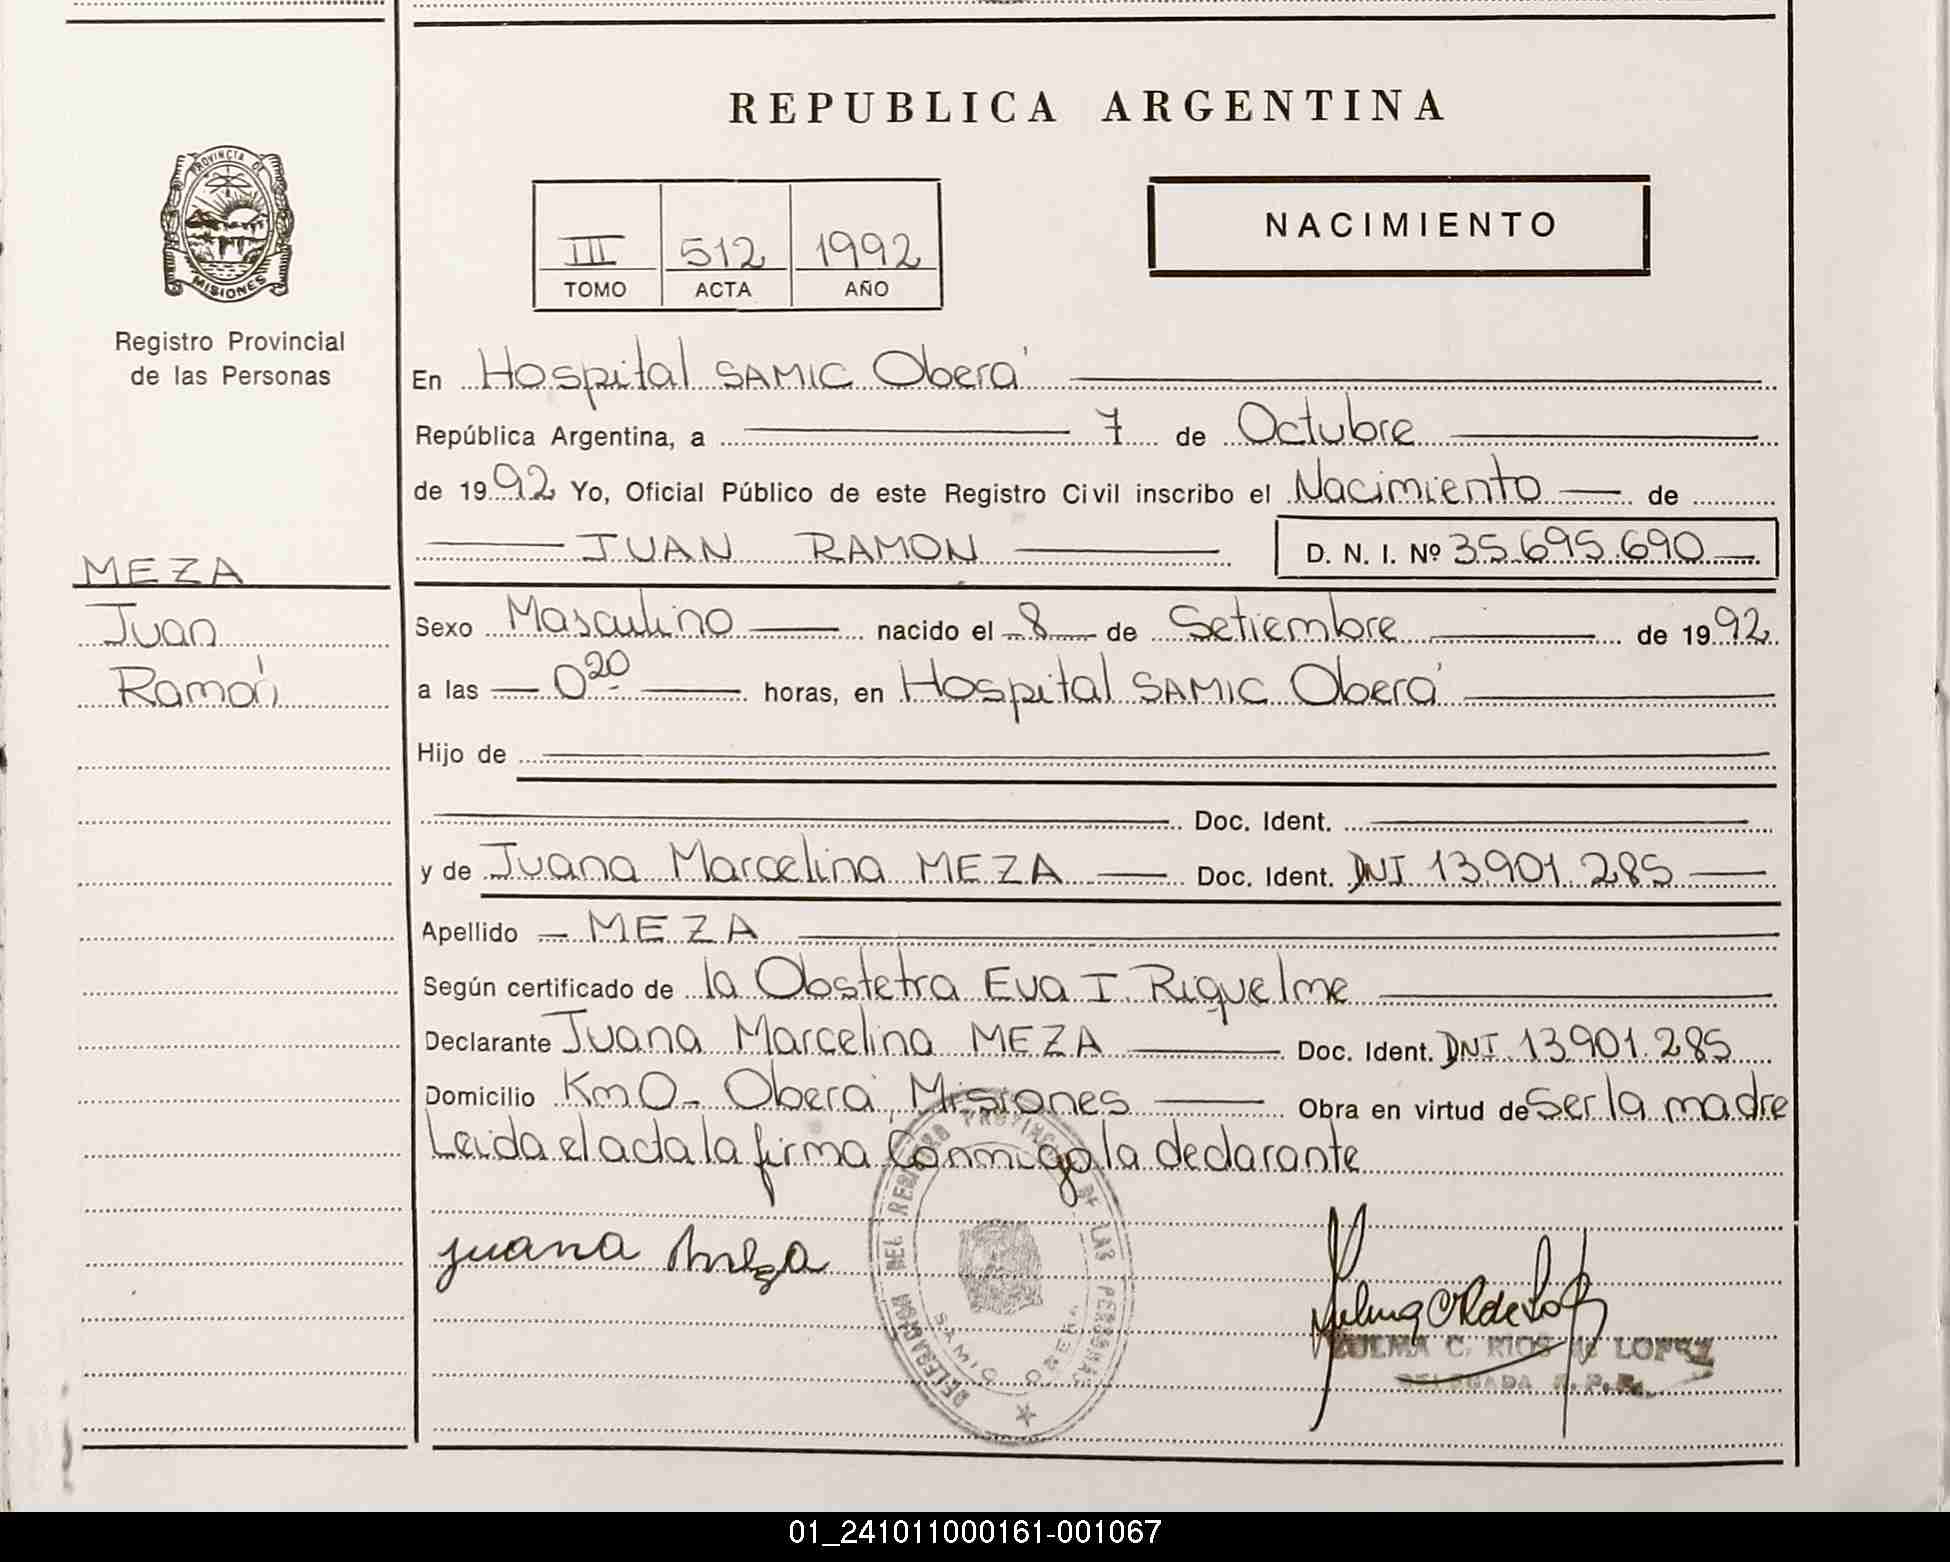 REPUBLICA ARGENTINA
PROVINCIA DE MISIONES
Registro Provincial
de las Personas
III 512 1992
TOMO ACTA AÑO
NACIMIENTO
En Hospital SAMIC Oberá
República Argentina, a 7 de Octubre
de 1992 Yo, Oficial Público de este Registro Civil inscribo el Nacimiento de
JUAN RAMON D. N. I. Nº 35.695.690
MEZA
Juan
Ramón
Sexo Masculino nacido el 8 de Setiembre de 1992
a las 0 20 horas, en Hospital SAMIC Oberá
Hijo de
Doc. Ident.
y de Juana Marcelina MEZA Doc. Ident. DNI 13.901.285
Apellido MEZA
Según certificado de la Obstetra Eva I. Riquelme
Declarante Juana Marcelina MEZA Doc. Ident. DNI 13.901.285
Domicilio Km 0 - Oberá, Misiones Obra en virtud de Ser la madre
Leida el acta la firma Conmigo la declarante
juana Meza
DELEGACION DEL REGISTRO PROVINCIAL DE LAS PERSONAS
SAMIC OBERA
ZULMA C. RIOS de LOPEZ
DELEGADA R.P.P.
01_241011000161-001067